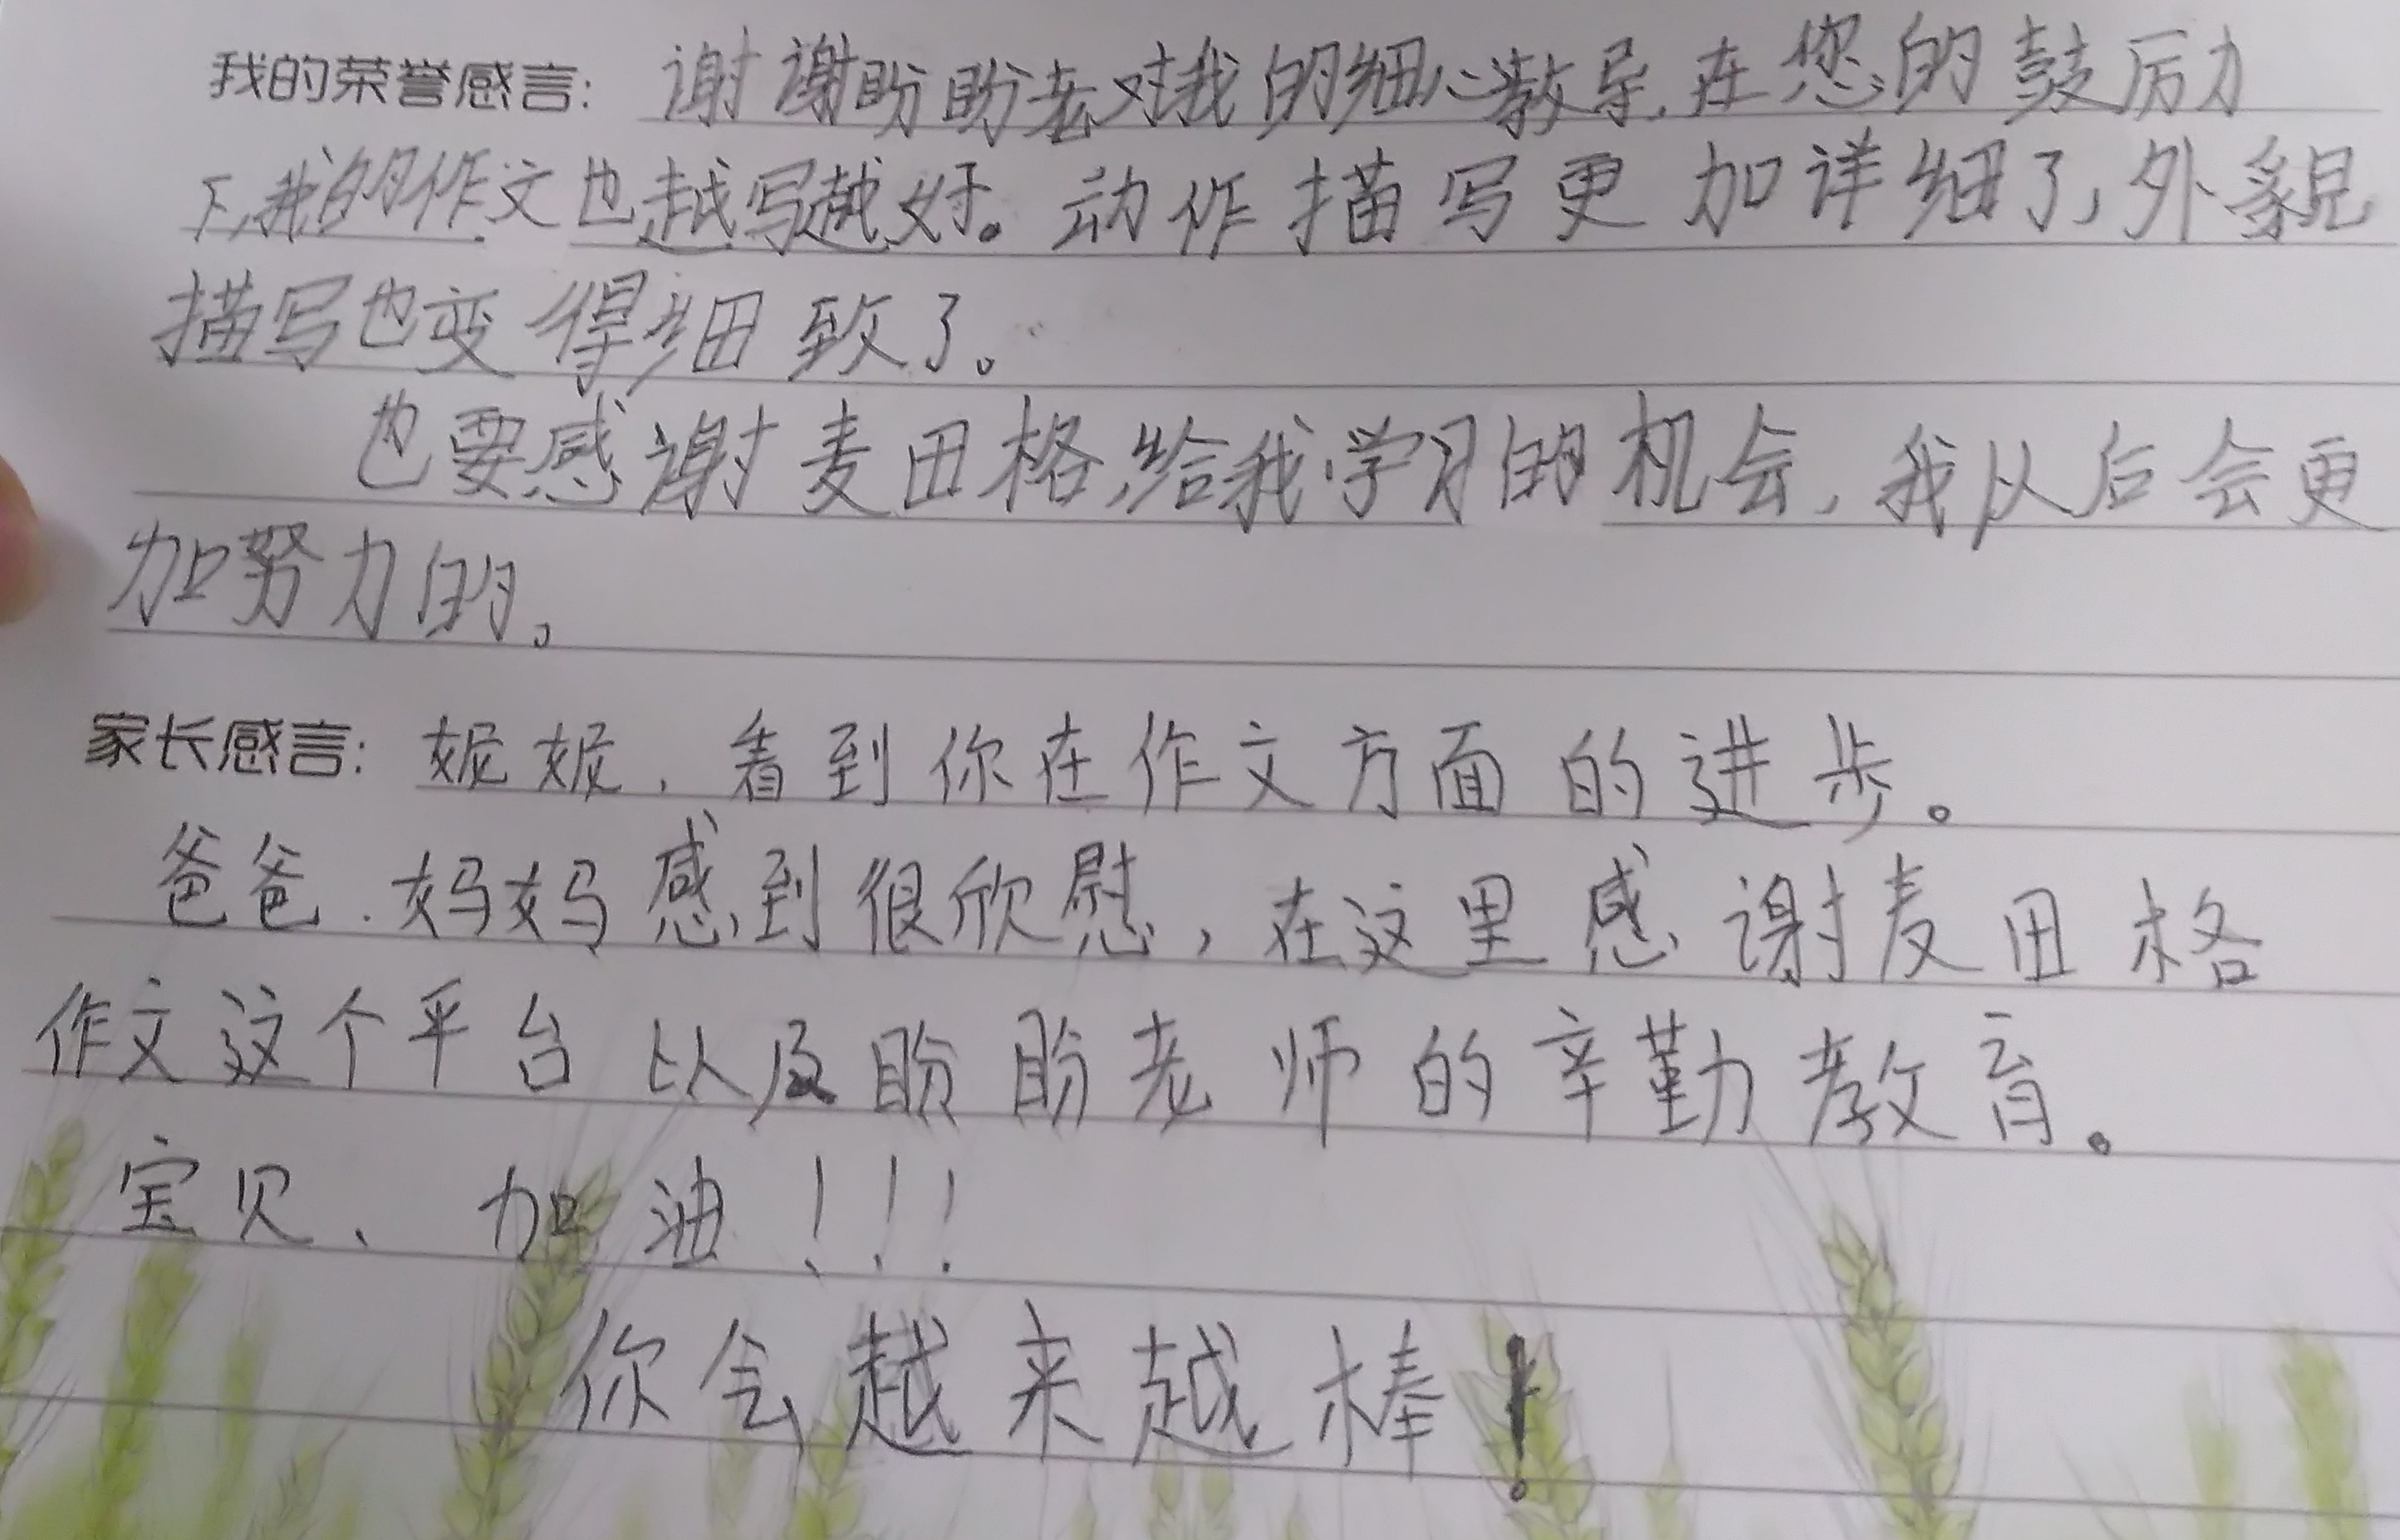 我的荣誉感言：谢谢盼盼老对我的细心教导，在您的鼓励
下，我的作文也越写越好。动作描写更加详细了，外貌
描写也变得细致了。
也要感谢麦田格，给我学习的机会，我从后会更
加努力的。
家长感言：妮妮，看到你在作文方面的进步。
爸爸、妈妈感到很欣慰，在这里感谢麦田格
作文这个平台以及盼盼老师的辛勤教育。
宝贝、加油！！！
你会越来越棒！